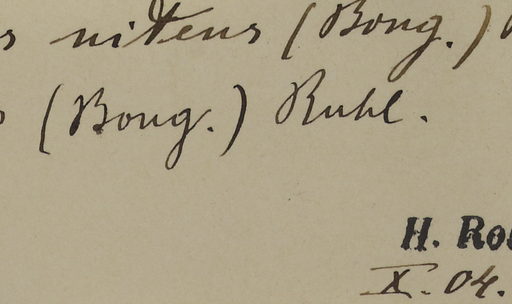 s nitens (Bong.)
(Bong.) Ruhl.
H. Ro
X. 04.